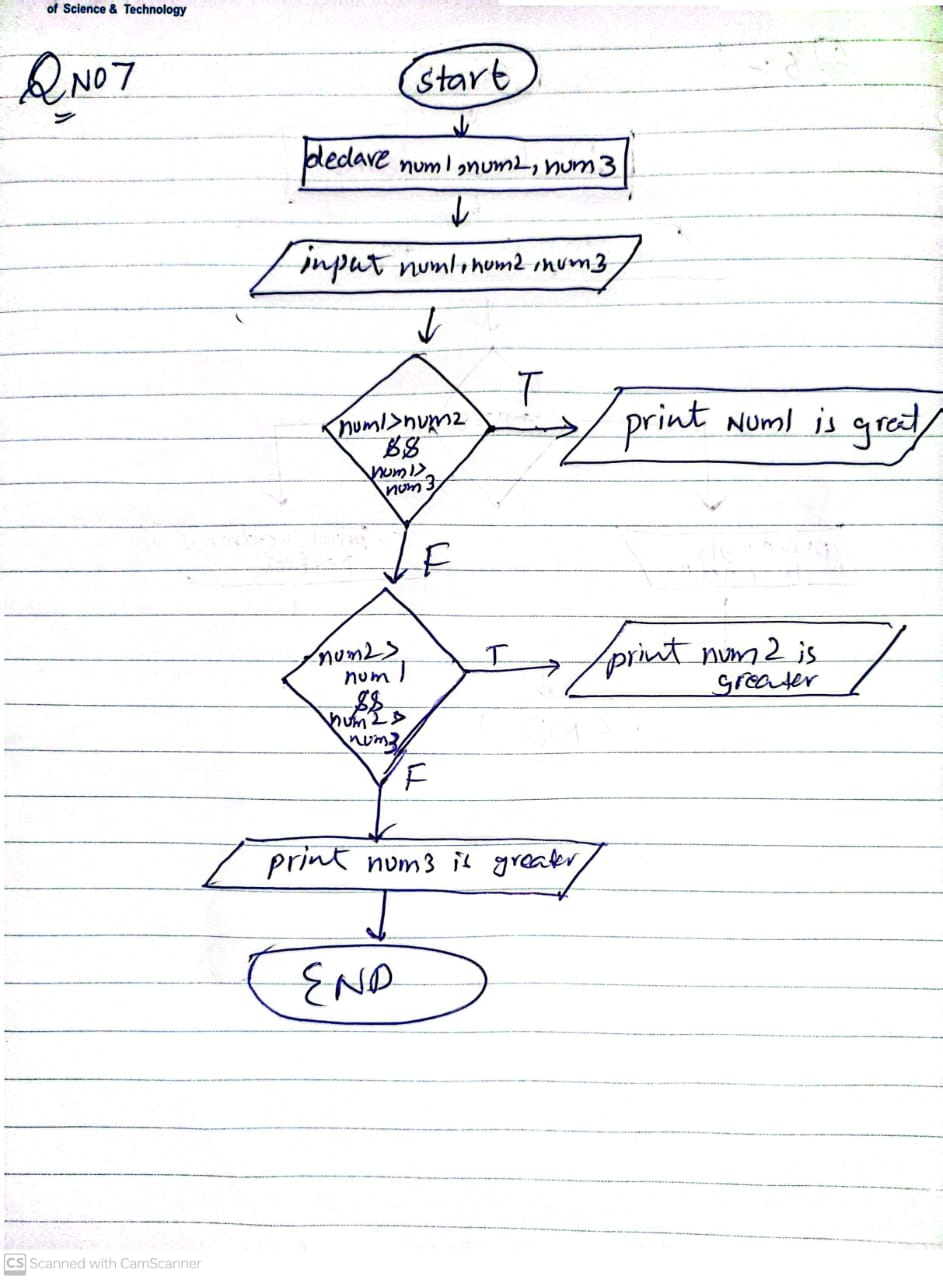 of Science & Technology
Q NO 7
start
declare num1,num2, num3
input num1, num2, num3
num1>num2
&&
num1>
num3
T
print Num1 is great
F
num2>
num1
&&
num2>
num3
T
print num2 is
greater
F
print num3 is greater
END
CS Scanned with CamScanner